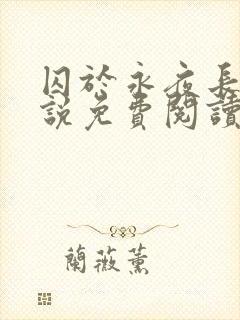 囚於永夜長
說免費閱讀
蘭薇薰